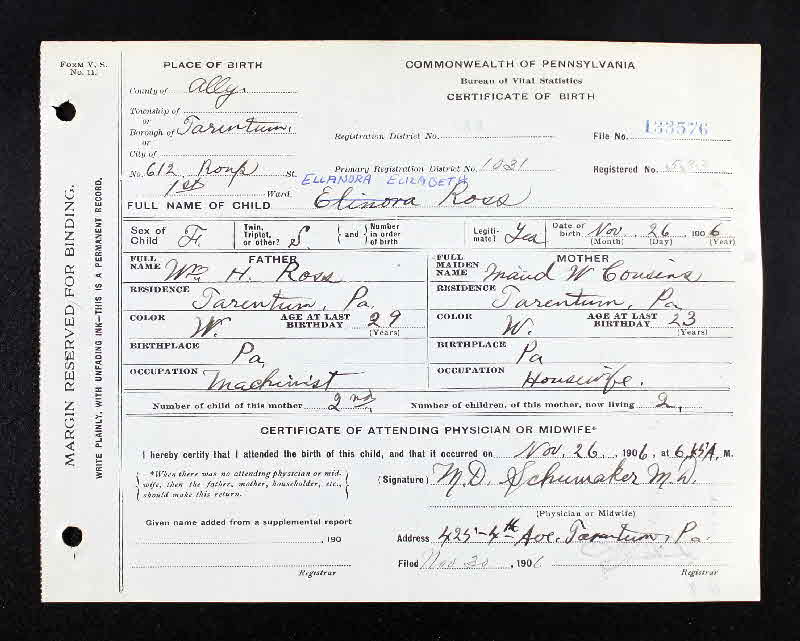 FORM V. S. No. 11.
MARGIN RESERVED FOR BINDING.
WRITE PLAINLY, WITH UNFADING INK—THIS IS A PERMANENT RECORD.
PLACE OF BIRTH
COMMONWEALTH OF PENNSYLVANIA
Bureau of Vital Statistics
CERTIFICATE OF BIRTH
County of Ally.
Township of
or
Borough of Tarentum.
or
City of
Registration District No.
File No. 133576
No. 612 Roup St.
Primary Registration District No. 1021
Registered No.
1st Ward.
ELLANORA ELIZABETH
FULL NAME OF CHILD Elinora Ross
Sex of Child F. Twin, Triplet, or other? S { and } Number in order of birth Legitimate? Yea Date of birth Nov. 26 1906
(Month) (Day) (Year)
FATHER
FULL NAME Wm H. Ross
MOTHER
FULL MAIDEN NAME Maud W Cousins
RESIDENCE Tarentum, Pa.
RESIDENCE Tarentum, Pa
COLOR W. AGE AT LAST BIRTHDAY 29 (Years)
COLOR W. AGE AT LAST BIRTHDAY 23 (Years)
BIRTHPLACE Pa
BIRTHPLACE Pa
OCCUPATION Machinist
OCCUPATION Housewife.
Number of child of this mother 2nd Number of children, of this mother, now living 2,
CERTIFICATE OF ATTENDING PHYSICIAN OR MIDWIFE*
I hereby certify that I attended the birth of this child, and that it occurred on Nov. 26, 1906, at 6.45 A. M.
*When there was no attending physician or midwife, then the father, mother, householder, etc., should make this return.
(Signature) M.D. Schumaker M.D.
(Physician or Midwife)
Given name added from a supplemental report
, 190
Registrar
Address 425-4th Ave. Tarentum, Pa.
Filed Nov 30, 1906
Registrar